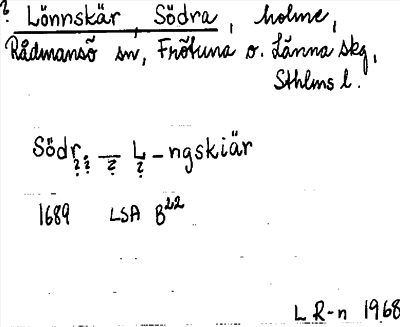 ? Lönnskär, Södra, holme,
Rådmansö sn, Frötuna o. Länna skg,
Sthlms l.
Södr. — L-ngskiär
?? ? ?
1689 LSA B22
L R-n 1968